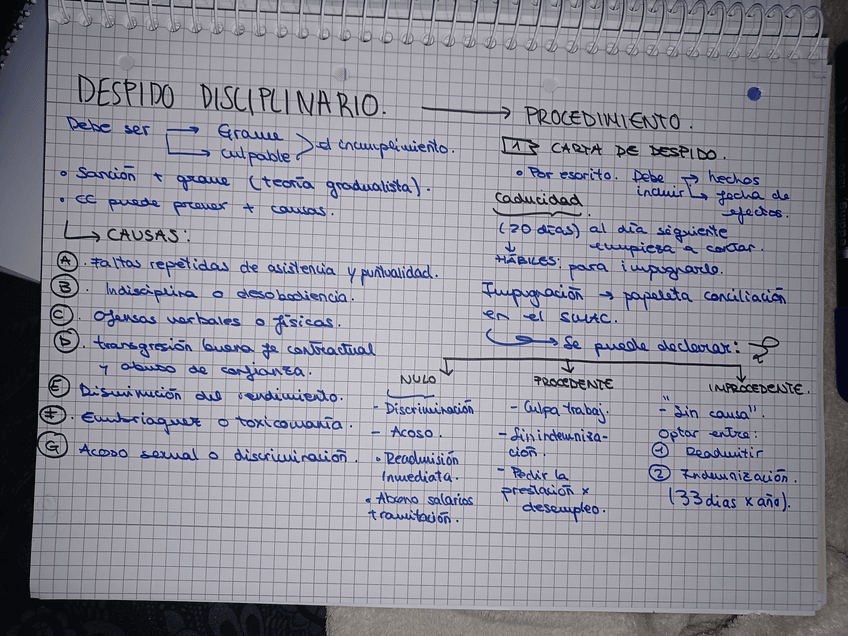 DESPIDO DISCIPLINARIO. → PROCEDIMIENTO.
Debe ser → Grave
→ culpable > el incumplimiento.
• Sanción + grave (teoría gradualista).
• CC puede prever + causas.
↳ CAUSAS:
A. Faltas repetidas de asistencia y puntualidad.
B. Indisciplina o desobediencia.
C. Ofensas verbales o físicas.
D. transgresión buena fe contractual
y abuso de confianza.
E Disminución del rendimiento.
F. Embriaguez o toxicomanía.
G Acoso sexual o discriminación.
1 → CARTA DE DESPIDO.
• Por escrito. Debe → hechos
incluir ↳ fecha de
efectos.
Caducidad
(20 días) al día siguiente
empieza a contar.
↓
HÁBILES: para impugnarlo.
Impugnación → papeleta conciliación
en el SMAC.
→ Se puede declarar:
NULO
- Discriminación
- Acoso.
• Readmisión
Inmediata.
• Abono salarios
tramitación.
PROCEDENTE
- Culpa trabaj.
- Sin indemniza-
ción.
- Pedir la
prestación x
desempleo.
IMPROCEDENTE.
"Sin causa".
Optar entre:
1 Readmitir
2 Indemnización.
(33 días x año).